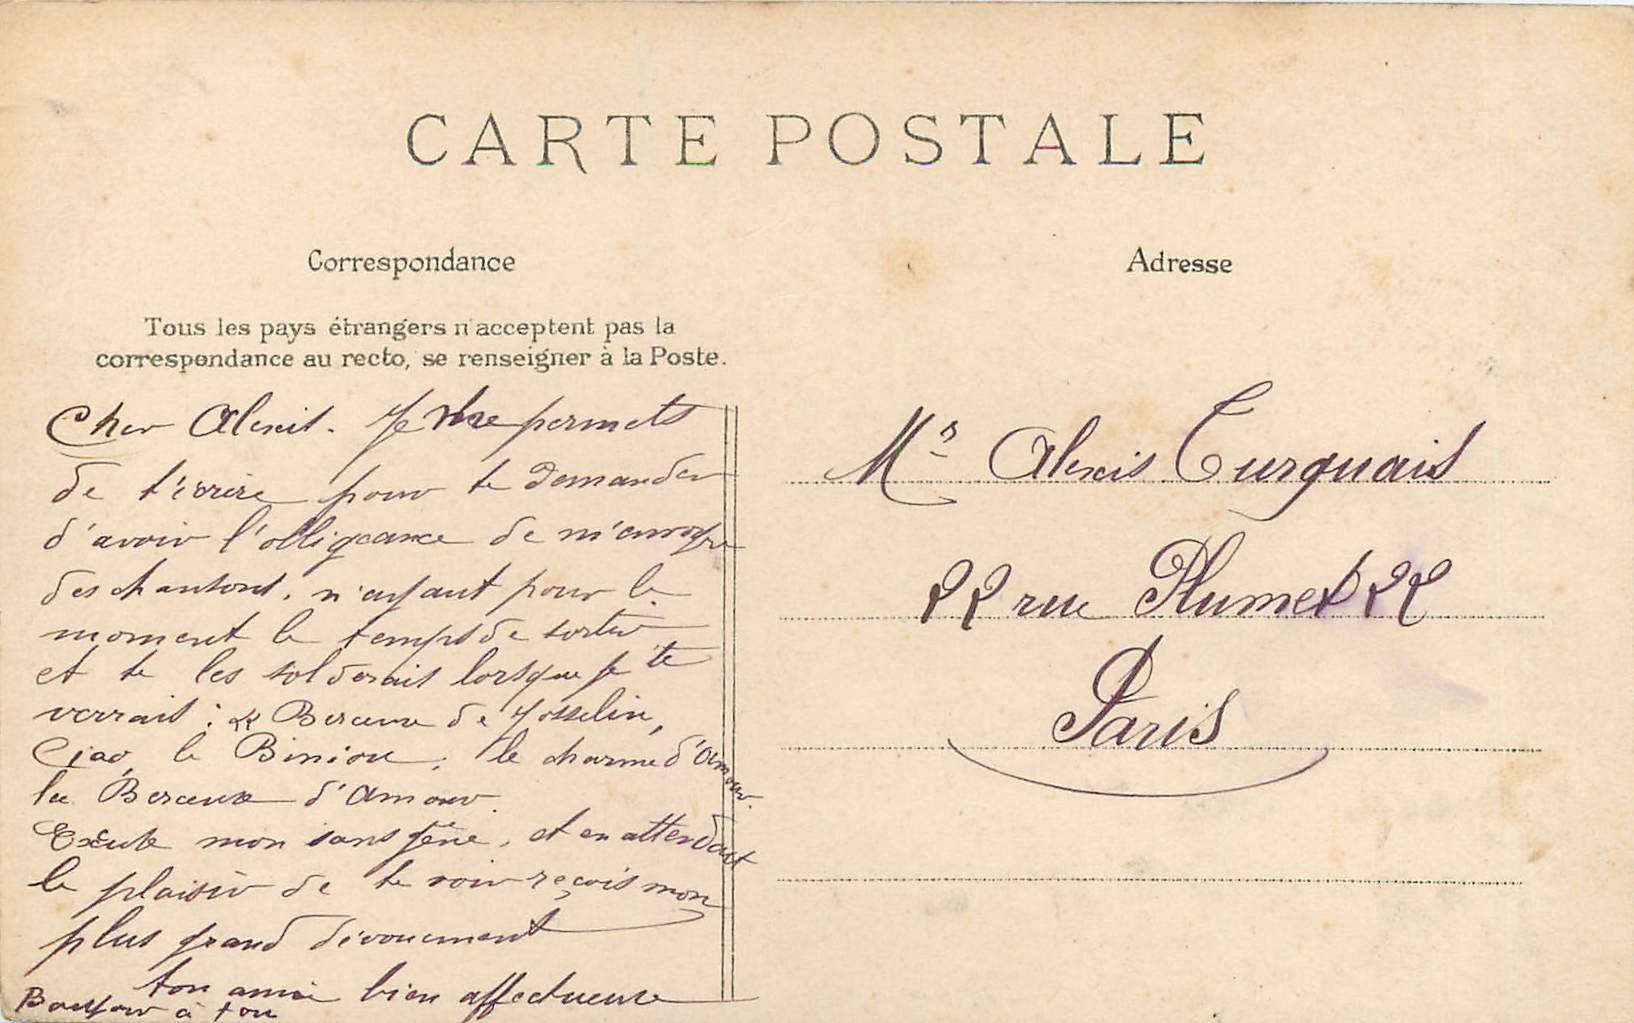 CARTE POSTALE
Correspondance
Tous les pays étrangers n'acceptent pas la
correspondance au recto, se renseigner à la Poste.
Cher Alexis. Je me permets
de t'écrire pour te demander
d'avoir l'obligeance de m'envoyer
des chansons, n'ayant pour le
moment le temps de sortir
et te les solderais lorsque je te
verrais : Berceuse de Josselin,
Ciao, le Biniou, le charme d'Amour.
la Berceuse d'Amour.
Excuse mon sans gêne, et en attendant
le plaisir de te voir reçois mon
plus grand dévouement
ton amie bien affectueuse
Bonjour à tou
Adresse
Mr Alexis Turquais
22 rue Plumet 22
Paris